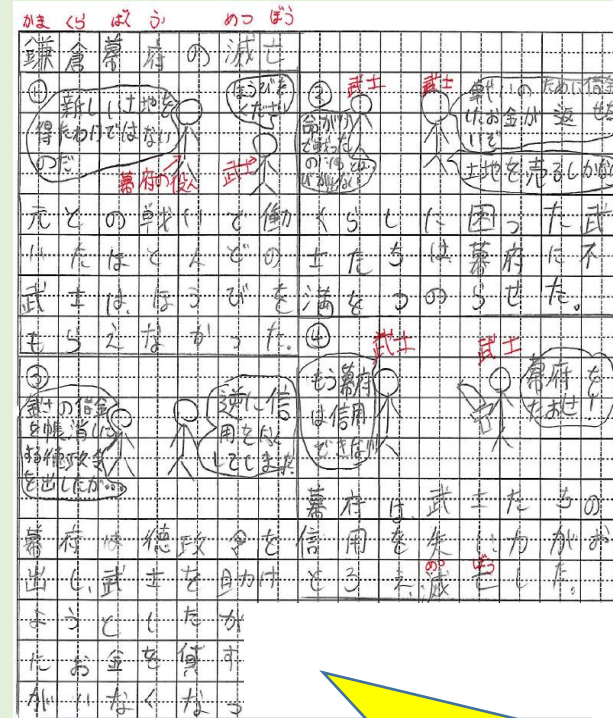 かま くら ばく ふ めつ ぼう
鎌倉幕府の滅亡
①
新しい土地を
得たわけではない
のだ
ほうびを
ください
幕府の役人
武士
元との戦いで働
いたほとんどの
武士は、ほうびを
もらえなかった。
②
武士
武士
命がけ
で戦った
のに
戦いのために借金
したお金が返せな
いぞ
土地を売るしかない
くらしに困った武
士たちは幕府に不
満をつのらせた。
③
武士の借金
を帳消しに
する徳政令
を出したが…
逆に信
用をなく
してしまった
幕府は徳政令を
出し、武士を助け
ようとしたが
たお金を貸す
がいなくなっ
④
武士
武士
もう幕府
は信用
できない
幕府を
たおせ！
幕府は、武士たちの
信用を失い力がお
めつ ぼう
とろえ、滅亡した。